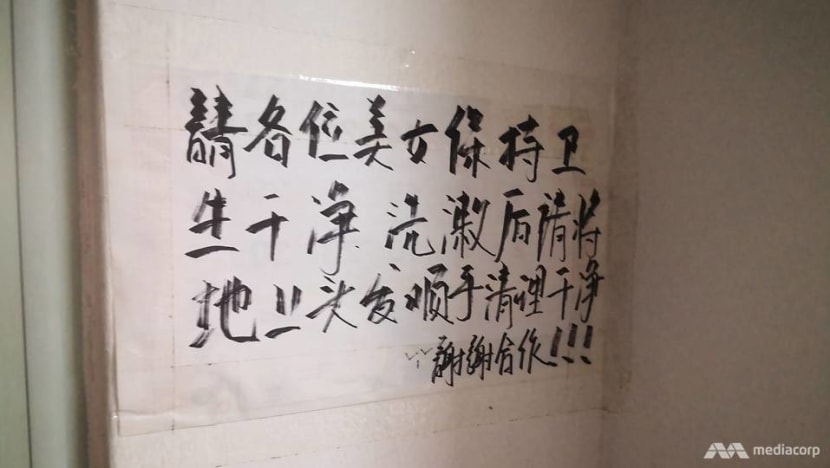 請各位美女保持卫
生干净 洗漱后請将
地上头发顺手清理干净
謝謝合作!!!
mediacorp